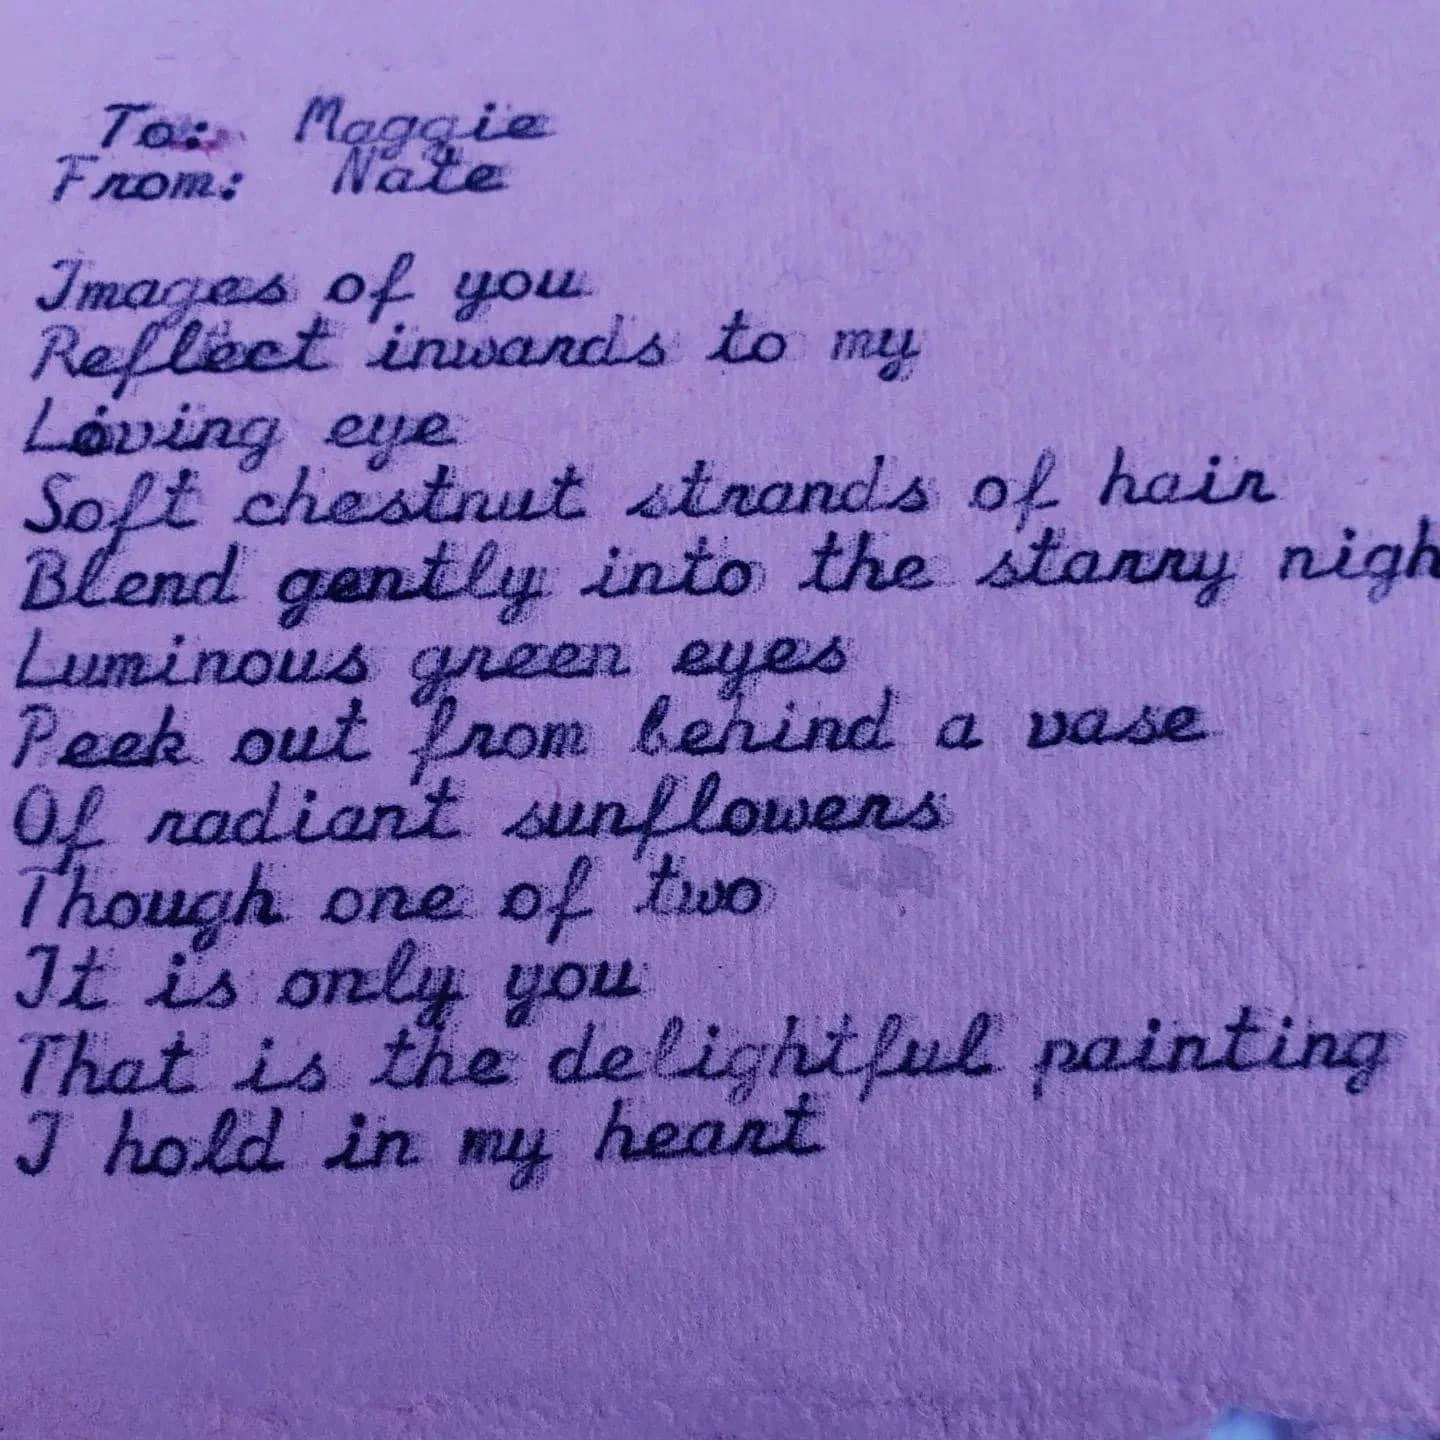 To: Maggie
From: Nate
Images of you
Reflect inwards to my
Loving eye
Soft chestnut strands of hair
Blend gently into the starry nigh
Luminous green eyes
Peek out from behind a vase
Of radiant sunflowers
Though one of two
It is only you
That is the delightful painting
I hold in my heart